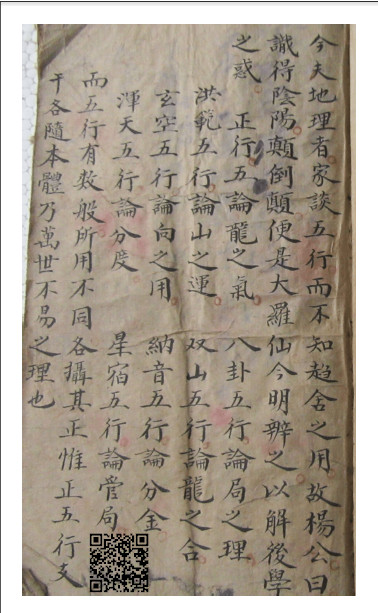 今夫地理者家談五行而不知趨舍之用故楊公曰
識得陰陽顛倒顛便是大羅仙今明辨之以解後學
之惑　正行五論龍之氣　八卦五行論局之理
洪範五行論山之運　双山五行論龍之合
玄空五行論向之用　納音五行論分金
渾天五行論分度　星宿五行論管局
而五行有数般所用不同各攝其正惟正五行支
干各隨本體乃萬世不易之理也